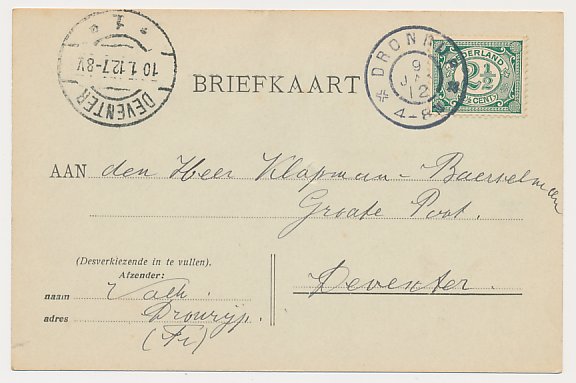 * 1 *
10.1.12.7-8V
DEVENTER
DRONR
9
JAN
12
4-8N
NEDERLAND
2½
CENT
BRIEFKAART
AAN den Heer Klapman-Baerselman
Groote Poot.
Deventer.
(Desverkiezende in te vullen).
Afzender:
naam
adres Dronrijp.
(Fr)